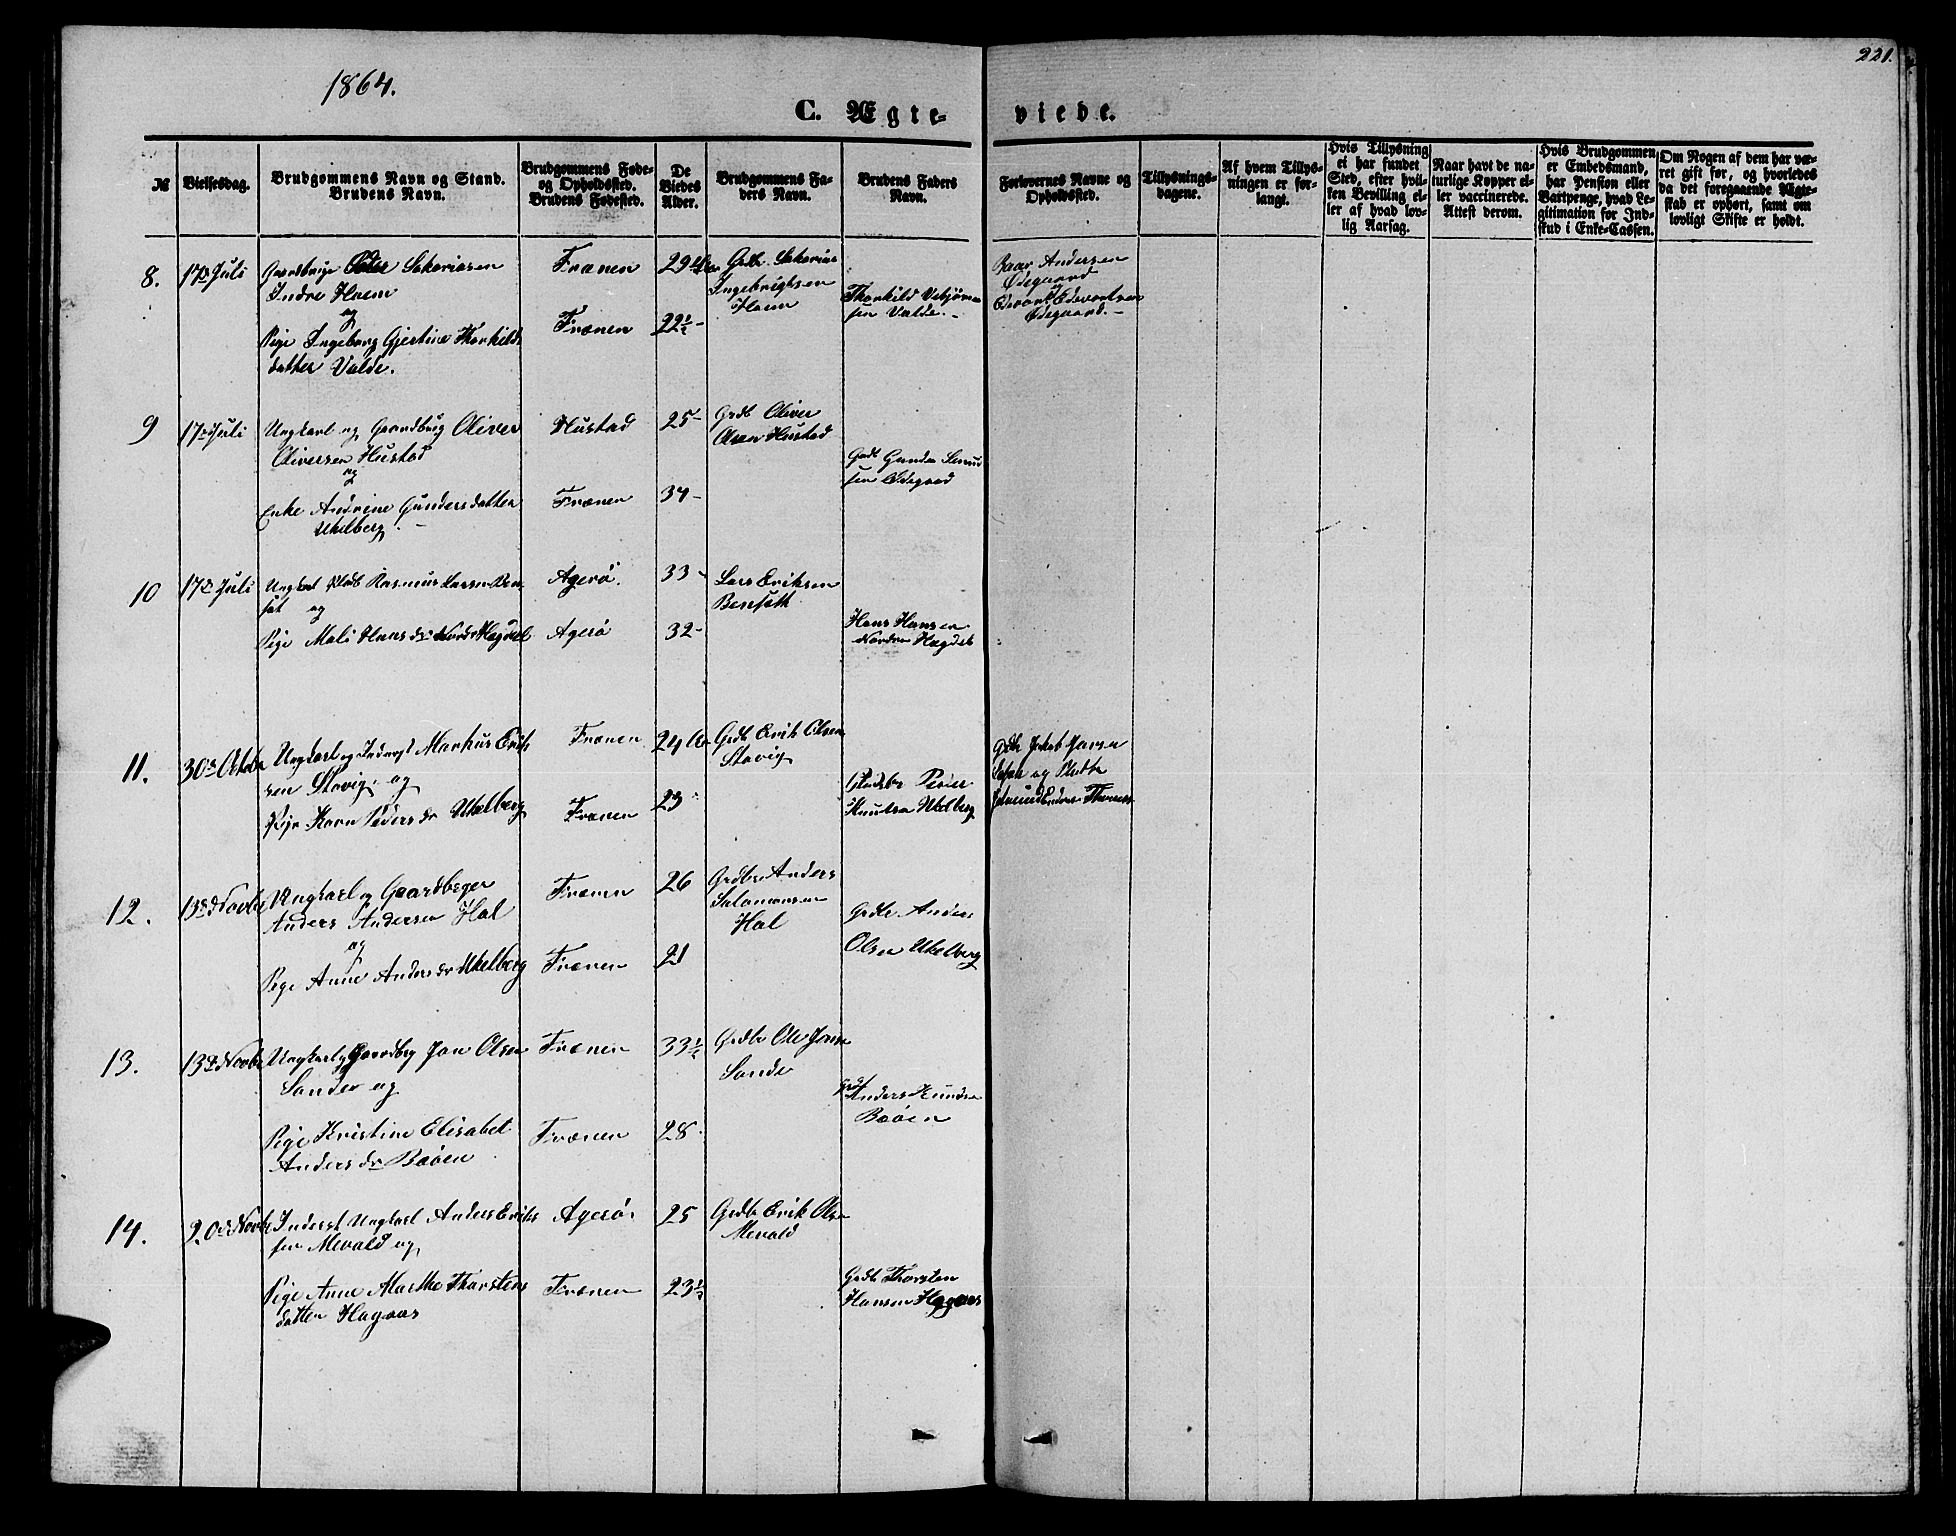 221.
1864.
C. Ægteviede.
№
Vielsesdag.
Brudgommens Navn og Stand.
Brudens Navn.
Brudgommens Føde-
og Opholdssted.
Brudens Fødested.
De
Viedes
Alder.
Brudgommens Fa-
ders Navn.
Brudens Faders
Navn.
Forlovernes Navne og
Opholdssted.
Tillysnings-
dagene.
Af hvem Tillys-
ningen er for-
langt.
Hvis Tillysning
ei har fundet
Sted, efter hvil-
ken Bevilling el-
ler af hvad lov-
lig Aarsag.
Naar havt de na-
turlige Kopper el-
ler vaccinerede.
Attest derom.
Hvis Brudgommen
er Embedsmand,
har Pension eller
Vartpenge, hvad Le-
gitimation for Ind-
skud i Enke-Cassen.
Om Nogen af dem har væ-
ret gift før, og hvorledes
da det foregaaende Ægte-
skab er ophørt, samt om
lovligt Skifte er holdt.
8.
17de Juli
Sakariasen
Indre Haem
og
Pige Ingeborg Gjertine Thorkilds
datter Valde.
Frænen
Frænen
29
22½
Grdbr. Sakarias
Ingebrigtsen
Haem
Thorkild
sen Valde.
Andersen
Ødegaard
og
Ødegaard.
9
17de Juli
Ungkarl og Gaardbrug Oliver
Oliversen Hustad
og
Enke Andrine Gundersdatter
Ukelberg.
Hustad
Frænen
25
34
Grdb Oliver
Olsen Hustad
Grdb Gunder
sen Ødegaard
10
17de Juli
Rasmus Larsen
og
Pige Mali Hansdr Nordre
Agerö.
Agerö
33
32
Lars Eriksen
Hans Hansen
Nordre
11.
30te Octobr
Ungkarl og Inderst Markus Erik
sen Stavig og
Pige Karn Peders dr Ukelberg
Frænen
Frænen
24
23
Grdb Erik Olsen
Stavig
Peder
Knutsen Ukelberg
Jakob
og
12.
13de Novbr
Ungkarl og Gaardbruger
Anders Andersen Hol
og
Pige Anne Anders dr Ukelberg
Frænen
Frænen
26
21
Grdbr Anders
Salomonsen
Hol
Grdbr. Anders
Olsen Ukelberg
13.
13de Novbr
Ungkarl og Gaardbrg Jon Olsen
Sande og
Pige Kristine Elisabet
Anders dr Bøöen
Frænen
Frænen
33½
28
Grdbr Ole
Sande
Anders
Bøöen
14.
20de Novbr
Inderst Ungkarl Anders Eriks
sen Mevald og
Pige Anne Marthe Thorstens
datter Hagaas
Agerö
Frænen
25
23½
Grdb Erik Olsen
Mevald
Grdb Thorsten
Hansen Hagaas